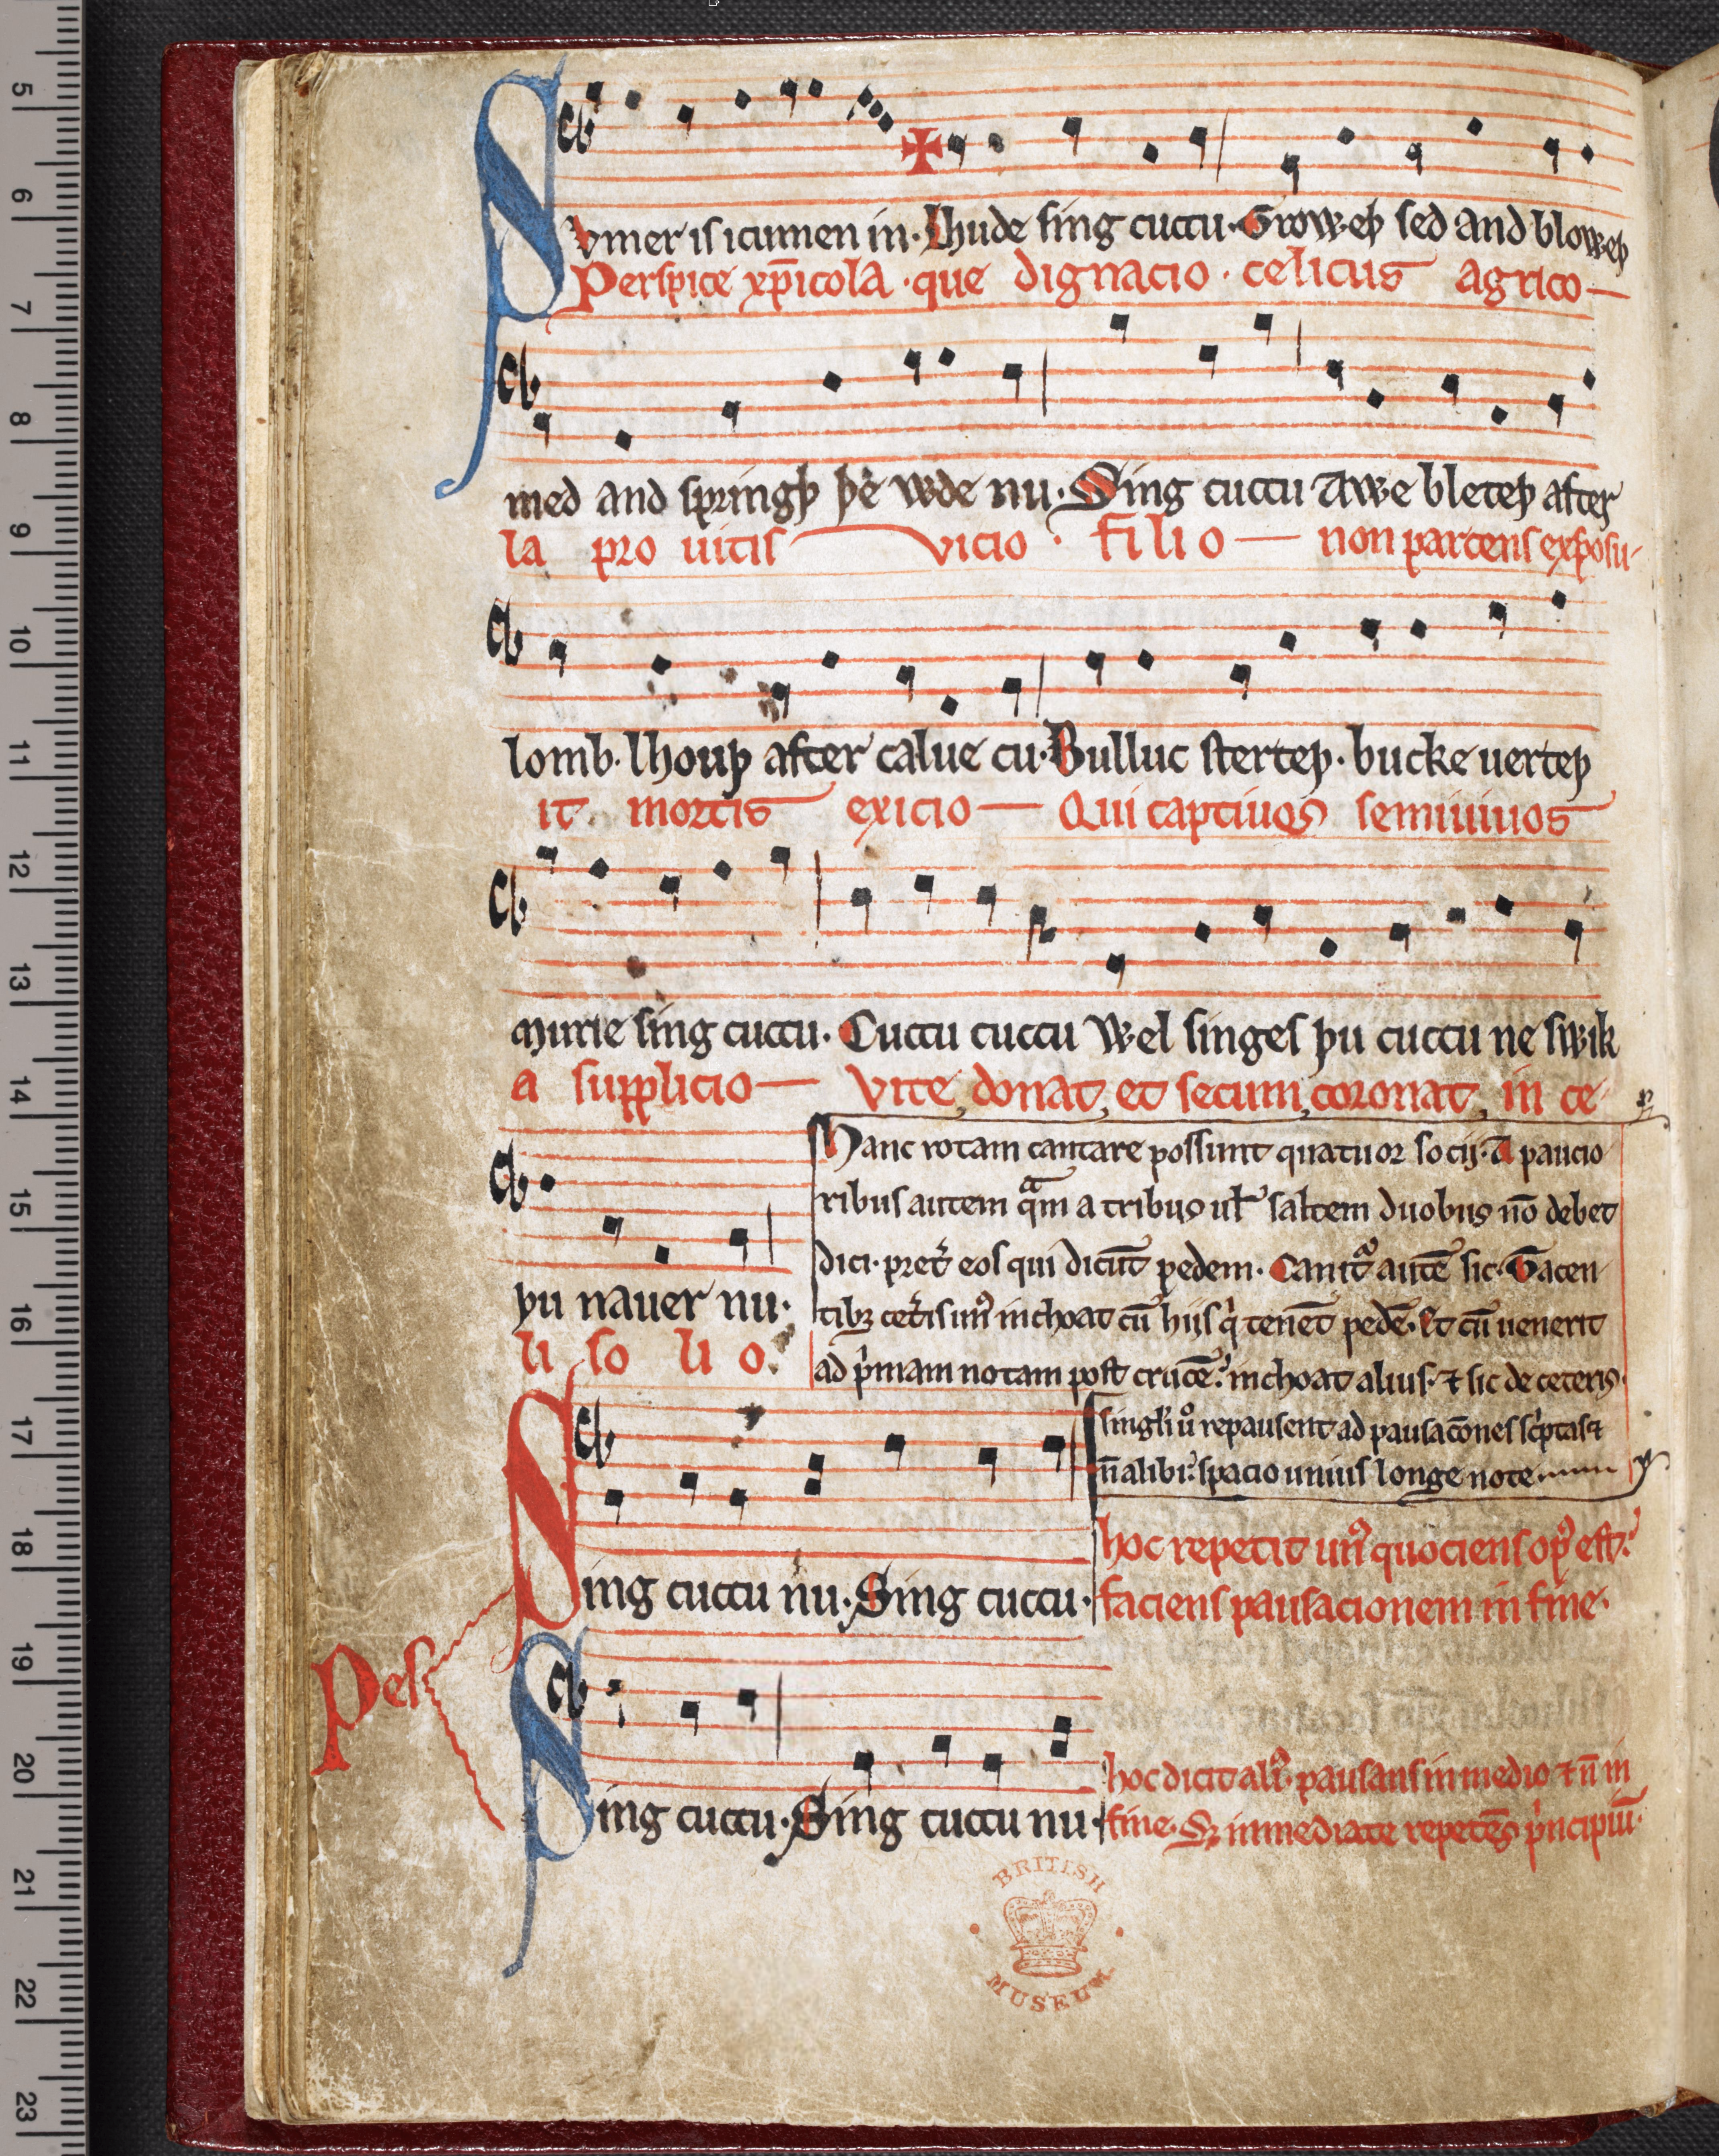 Svmer is icumen in. Lhude sing cuccu. Groweþ sed and bloweþ
Perspice xp̄icola. que dignacio. celicus agrico
med and springþ þe wde nu. Sing cuccu Awe bleteþ after
la pro uitis vicio. filio non parcens exposu
lomb. lhouþ after calue cu. Bulluc sterteþ. bucke uerteþ
it mortis exicio Qui captiuos semiuiuos
murie sing cuccu. Cuccu cuccu Wel singes þu cuccu ne swik
a supplicio vite donat, et secum coronat, in ce
þu nauer nu.
li so li o.
Hanc rotam cantare possunt quatuor socij. A paucio
ribus autem qᵃm a tribus ul' saltem duobus nō debet
dici. pret' eos qui dicūt pedem. Canitᵃ autē sic. Tacen
tibꝫ cet'is unꝰ inchoat cū hijs qⁱ tenēt pedē. Et cū uenerit
ad pⁱmam notam post crucē. inchoat alius. ⁊ sic de ceteris.
singl'i uº repausent ad pausacōnes scⁱptas ⁊
ñ alibi. spacio unius longe note
Sing cuccu nu. Sing cuccu.
hoc repetit unꝰ quociens opꝰ est.
faciens pausacionem in fine.
Pes
Sing cuccu. Sing cuccu nu.
hoc dicit aliꝰ. pausans in medio ⁊ ñ in
fine. Sꝫ immediate repetēs pⁱncipiū.
BRITISH
MUSEUM
5
6
7
8
9
10
11
12
13
14
15
16
17
18
19
20
21
22
23